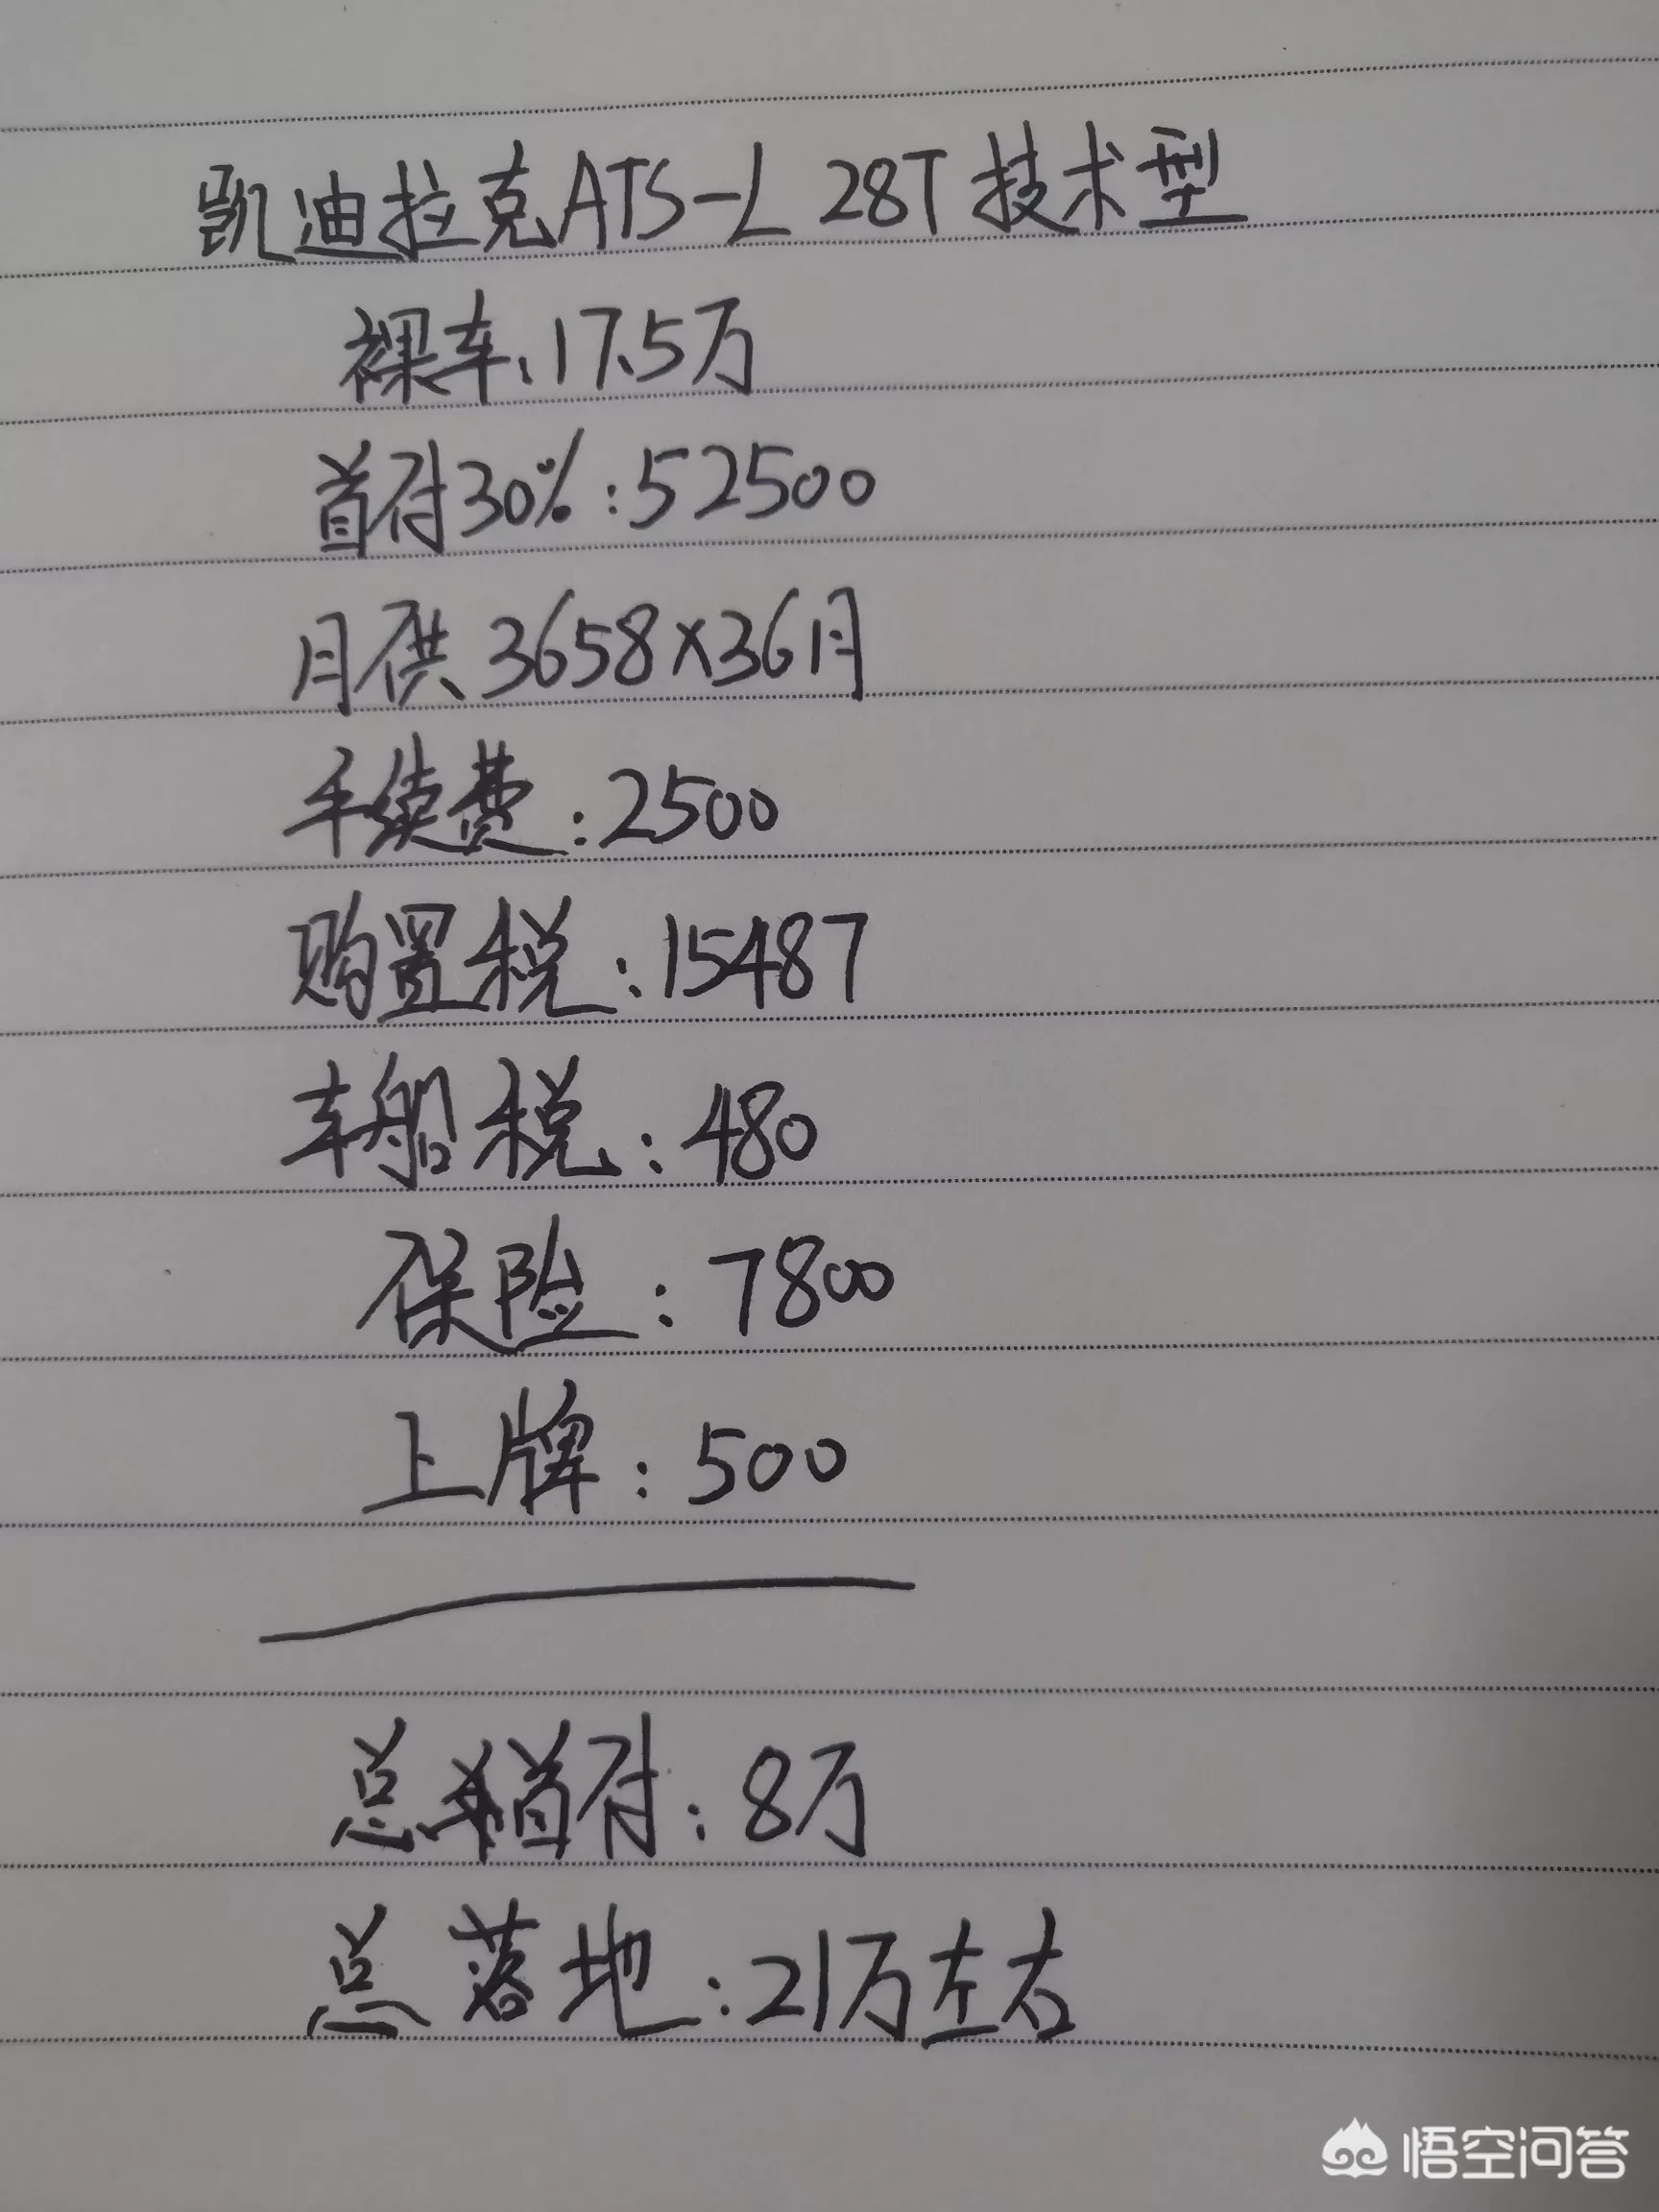 凯迪拉克ATS-L 28T 技术型
裸车:17.5万
首付30%:52500
月供 3658×36月
手续费:2500
购置税:15487
车船税:480
保险:7800
上牌:500
总首付:8万
总落地:21万左右
悟空问答